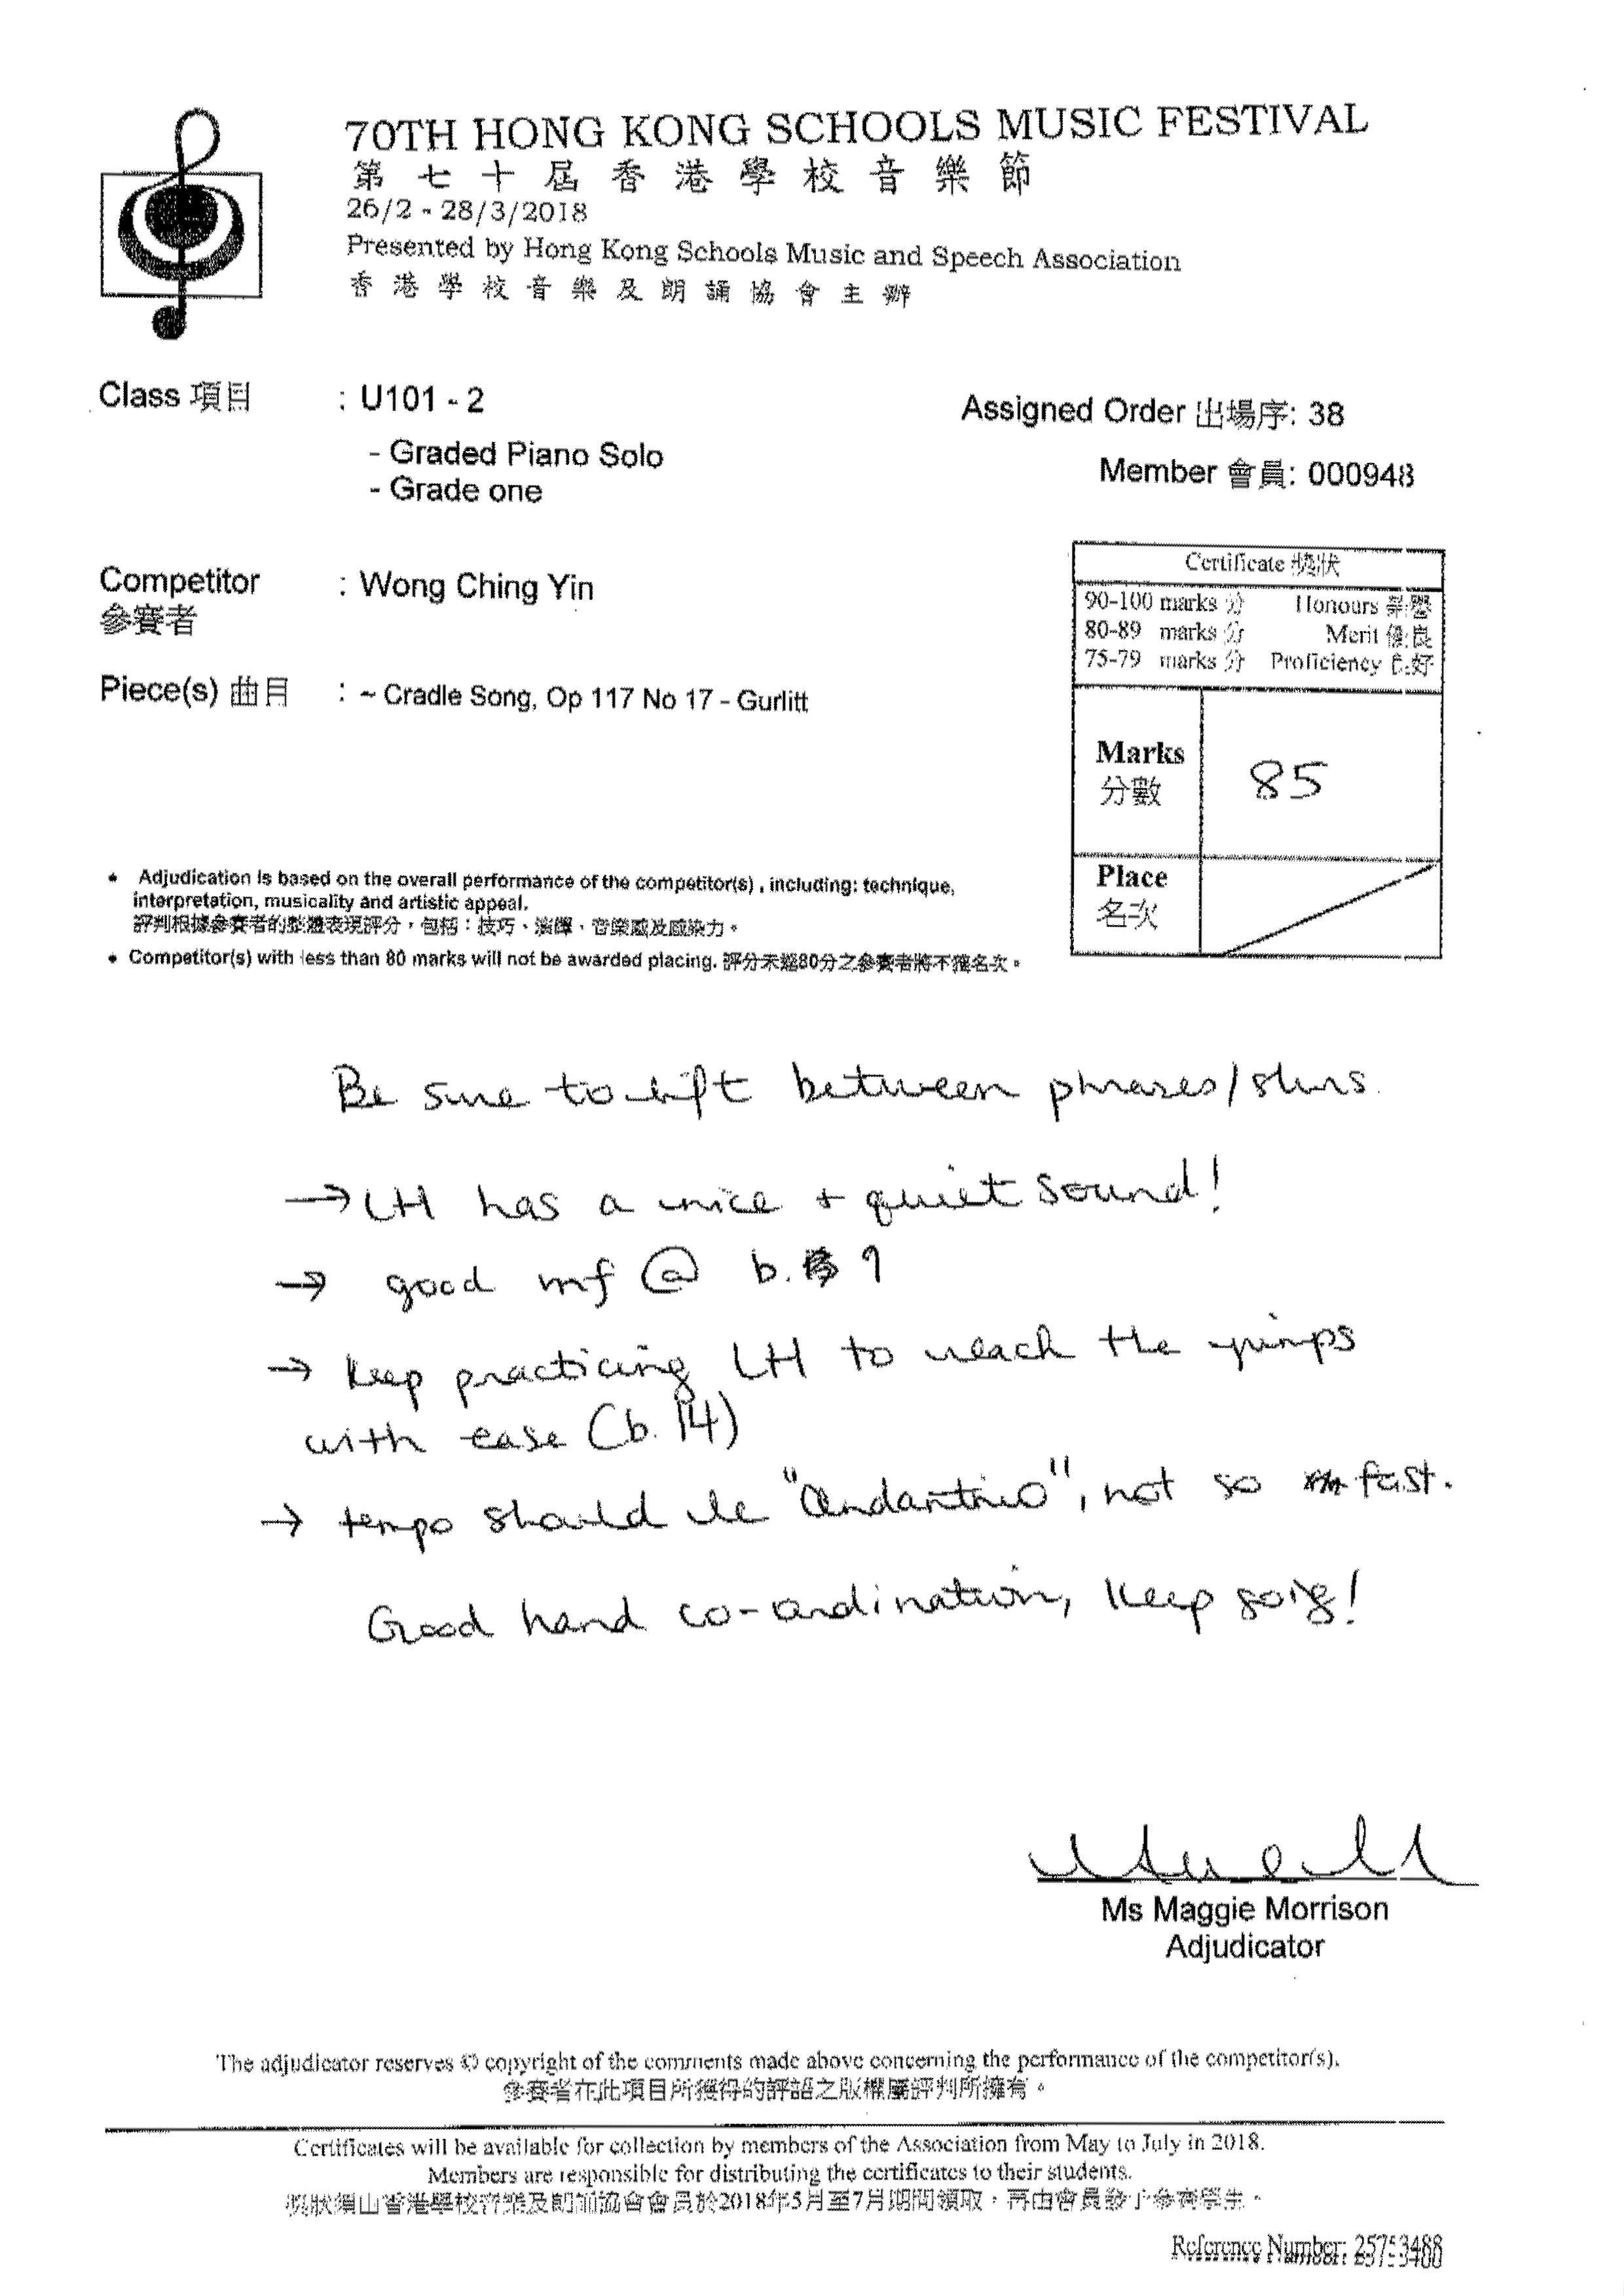 70TH HONG KONG SCHOOLS MUSIC FESTIVAL
第七十屆香港學校音樂節
26/2 - 28/3/2018
Presented by Hong Kong Schools Music and Speech Association
香港學校音樂及朗誦協會主辦
Class 項目 : U101 - 2
- Graded Piano Solo
- Grade one
Assigned Order 出場序: 38
Member 會員: 000948
Competitor : Wong Ching Yin
參賽者
Piece(s) 曲目 : ~ Cradle Song, Op 117 No 17 - Gurlitt
Certificate 獎狀
90-100 marks 分 Honours 榮譽
80-89 marks 分 Merit 優良
75-79 marks 分 Proficiency 良好
Marks 85
分數
Place
名次
• Adjudication is based on the overall performance of the competitor(s) , including: technique,
interpretation, musicality and artistic appeal.
評判根據參賽者的整體表現評分，包括：技巧、演繹、音樂感及感染力。
• Competitor(s) with less than 80 marks will not be awarded placing. 評分未超80分之參賽者將不獲名次。
Be sure to lift between phrases/slurs.
→ LH has a nice + quiet sound!
→ good mf @ b. 9
→ keep practicing LH to reach the jumps
with ease (b. 14)
→ tempo should be "Andantino", not so fast.
Good hand co-ordination, keep going!
Ms Maggie Morrison
Adjudicator
The adjudicator reserves © copyright of the comments made above concerning the performance of the competitor(s).
參賽者在此項目所獲得的評語之版權屬評判所擁有。
Certificates will be available for collection by members of the Association from May to July in 2018.
Members are responsible for distributing the certificates to their students.
獎狀須由香港學校音樂及朗誦協會會員於2018年5月至7月期間領取，再由會員發予參賽學生。
Reference Number: 25753488